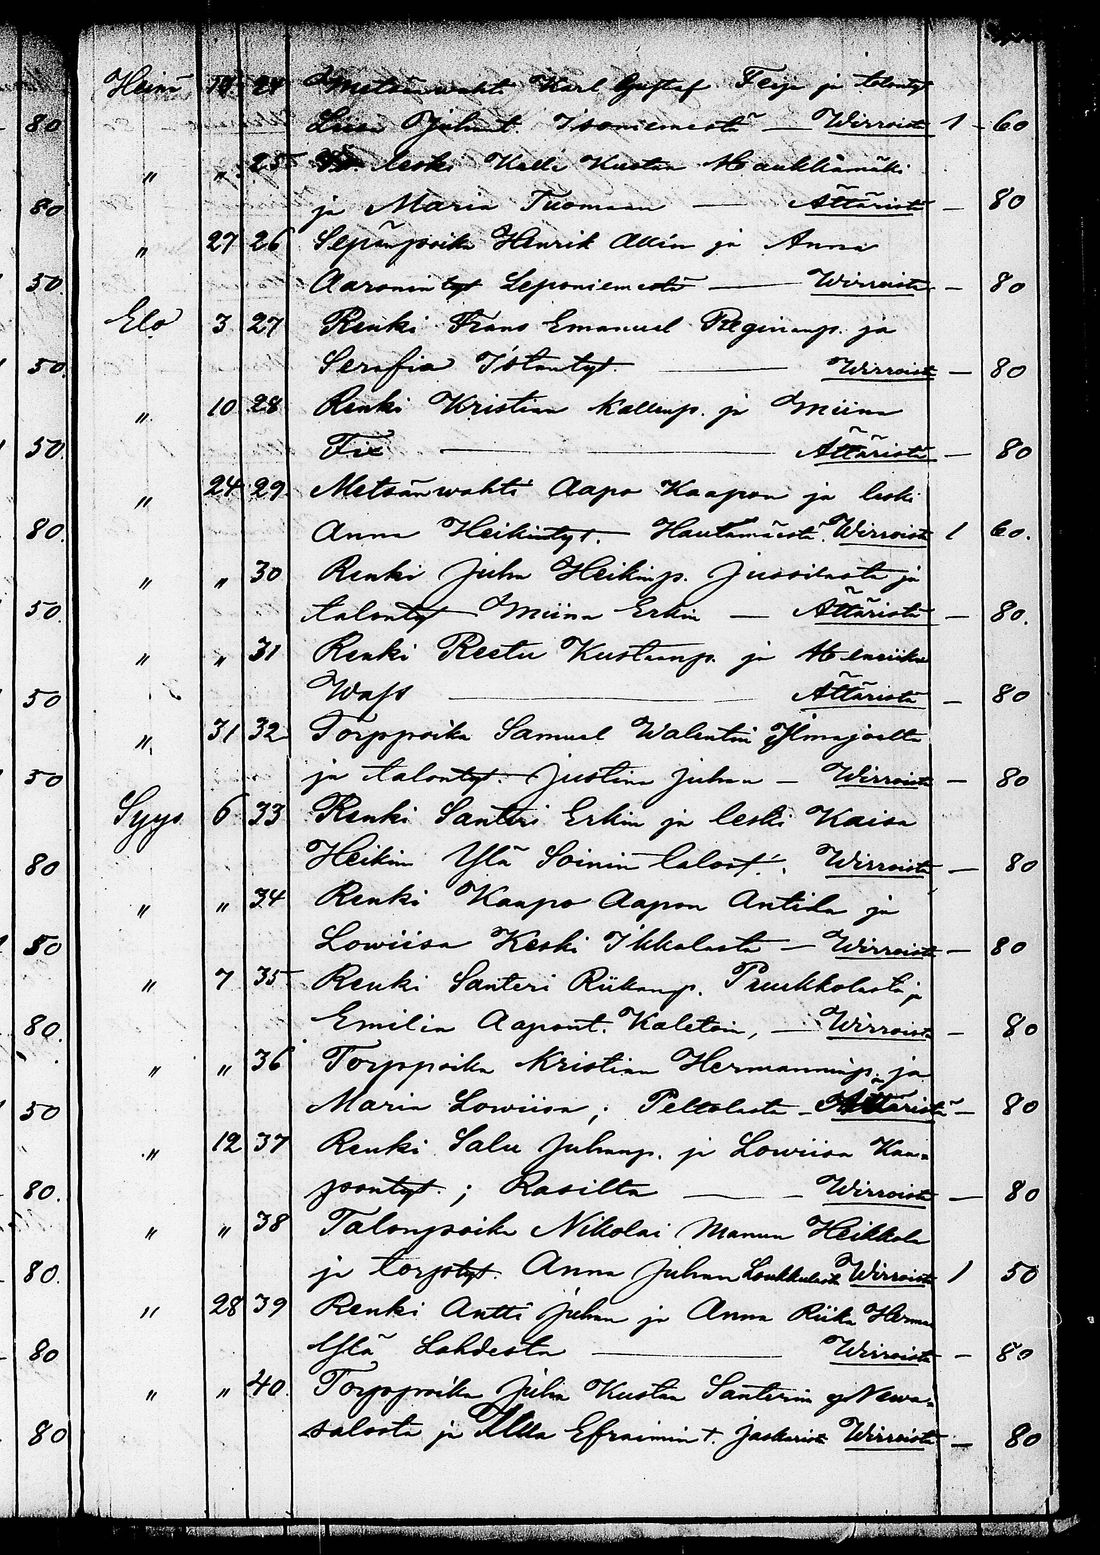 80
80
50.
50.
50.
80.
50.
50
50
80
50
80.
50
80.
80.
80
80
Heinä 24 Metsänwaht. Karl Gustaf ja talontyt
Liisa Juhant. Isoniemestä — Wirroista 1 60
" " 25 leski Kalle Kustaa Haukkamäki
ja Maria Tuomaan — Ättäristä — 80
" 27 26 Sepänpoika Henrik Allin ja Anna
Aaronin tyt Leponiemestä — Wirroista — 80
Elo 3 27 Renki Frans Emanuel Reginanp. ja
Serafia Is.tantyt. — Wirroista — 80
" 10 28 Renki Kristian Kallenp. ja Miina
Fix — Ättäristä — 80
" 24 29 Metsänwahti Aapo Kaapon ja leski
Anna Heikintyt. Hautamäestä. Wirroista 1 60.
" " 30 Renki Juha Heikinp. Jussilasta ja
talontyt Miina Erkin — Ättäristä — 80.
" " 31 Renki Reetu Kustaanp. ja Henriika
Wass — Ättäristä — 80
" 31 32 Torppoika Samuel Walentin Ylmajoelta
ja talontyt. Justina Juhan — Wirroista — 80
Syys 6 33 Renki Santeri Erkin ja leski Kaisa
Heikin Ylä Soinin talost. Wirroista — 80
" " 34 Renki Kaapo Aapon Antila ja
Lowiisa Keski Ikkalasta — Wirroista — 80
" 7 35 Renki Santeri Riikanp. Puukkolasta ja
Emilia Aapont. Kaleton, — Wirroista — 80
" " 36 Torppoika Kristian Hermanninp. ja
Maria Lowiisa; Peltolasta — Ättäristä — 80
" 12 37 Renki Salu Juhanp. ja Lowiisa Kaa-
pontyt.; Rasilta — Wirroista — 80
" " 38 Talonpoika Nikolai Manun Heikkola
ja torptyt. Anna Juhan Loukkulasta Wirroista 1 50
" 28 39 Renki Antti Juhan ja Anna Riika Herman
Ylä Lahdesta — Wirroista — 80
" " 40. Torppoika Juha Kustaa Santerin Newa-
salosta ja Ulla Efraimin t. Jaskarista Wirroista — 80